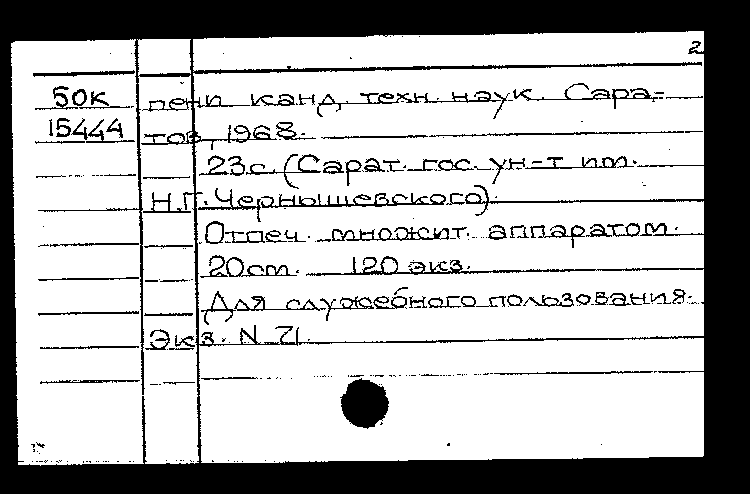 2
50К пени канд. техн. наук. Сара-
15444 тов, 1968.
23с. (Сарат. гос. ун-т им.
Н.Г. Чернышевского).
Отпеч. множит. аппаратом.
20см. 120 экз.
Для служебного пользования.
Экз. N 71.